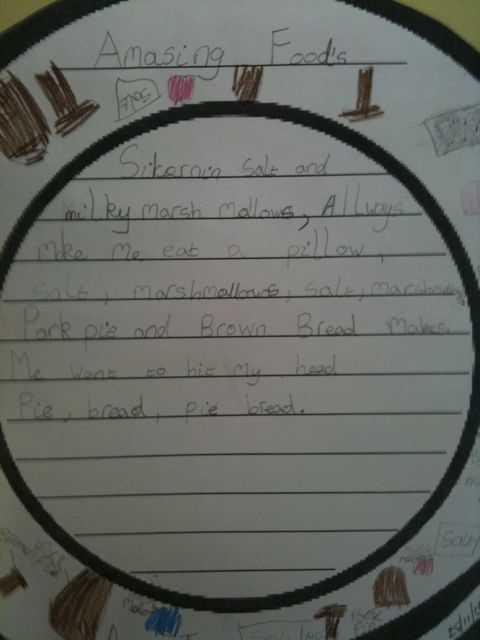 Amasing Food's
Sikernin Salt and
milky marsh mallows, Allways
Make Me eat a pillow,
Salt, marshmallows, Salt, marshmallows
Pork pie and Brown Bread makes
Me want to hit my head
Pie, bread, pie bread.
Salt